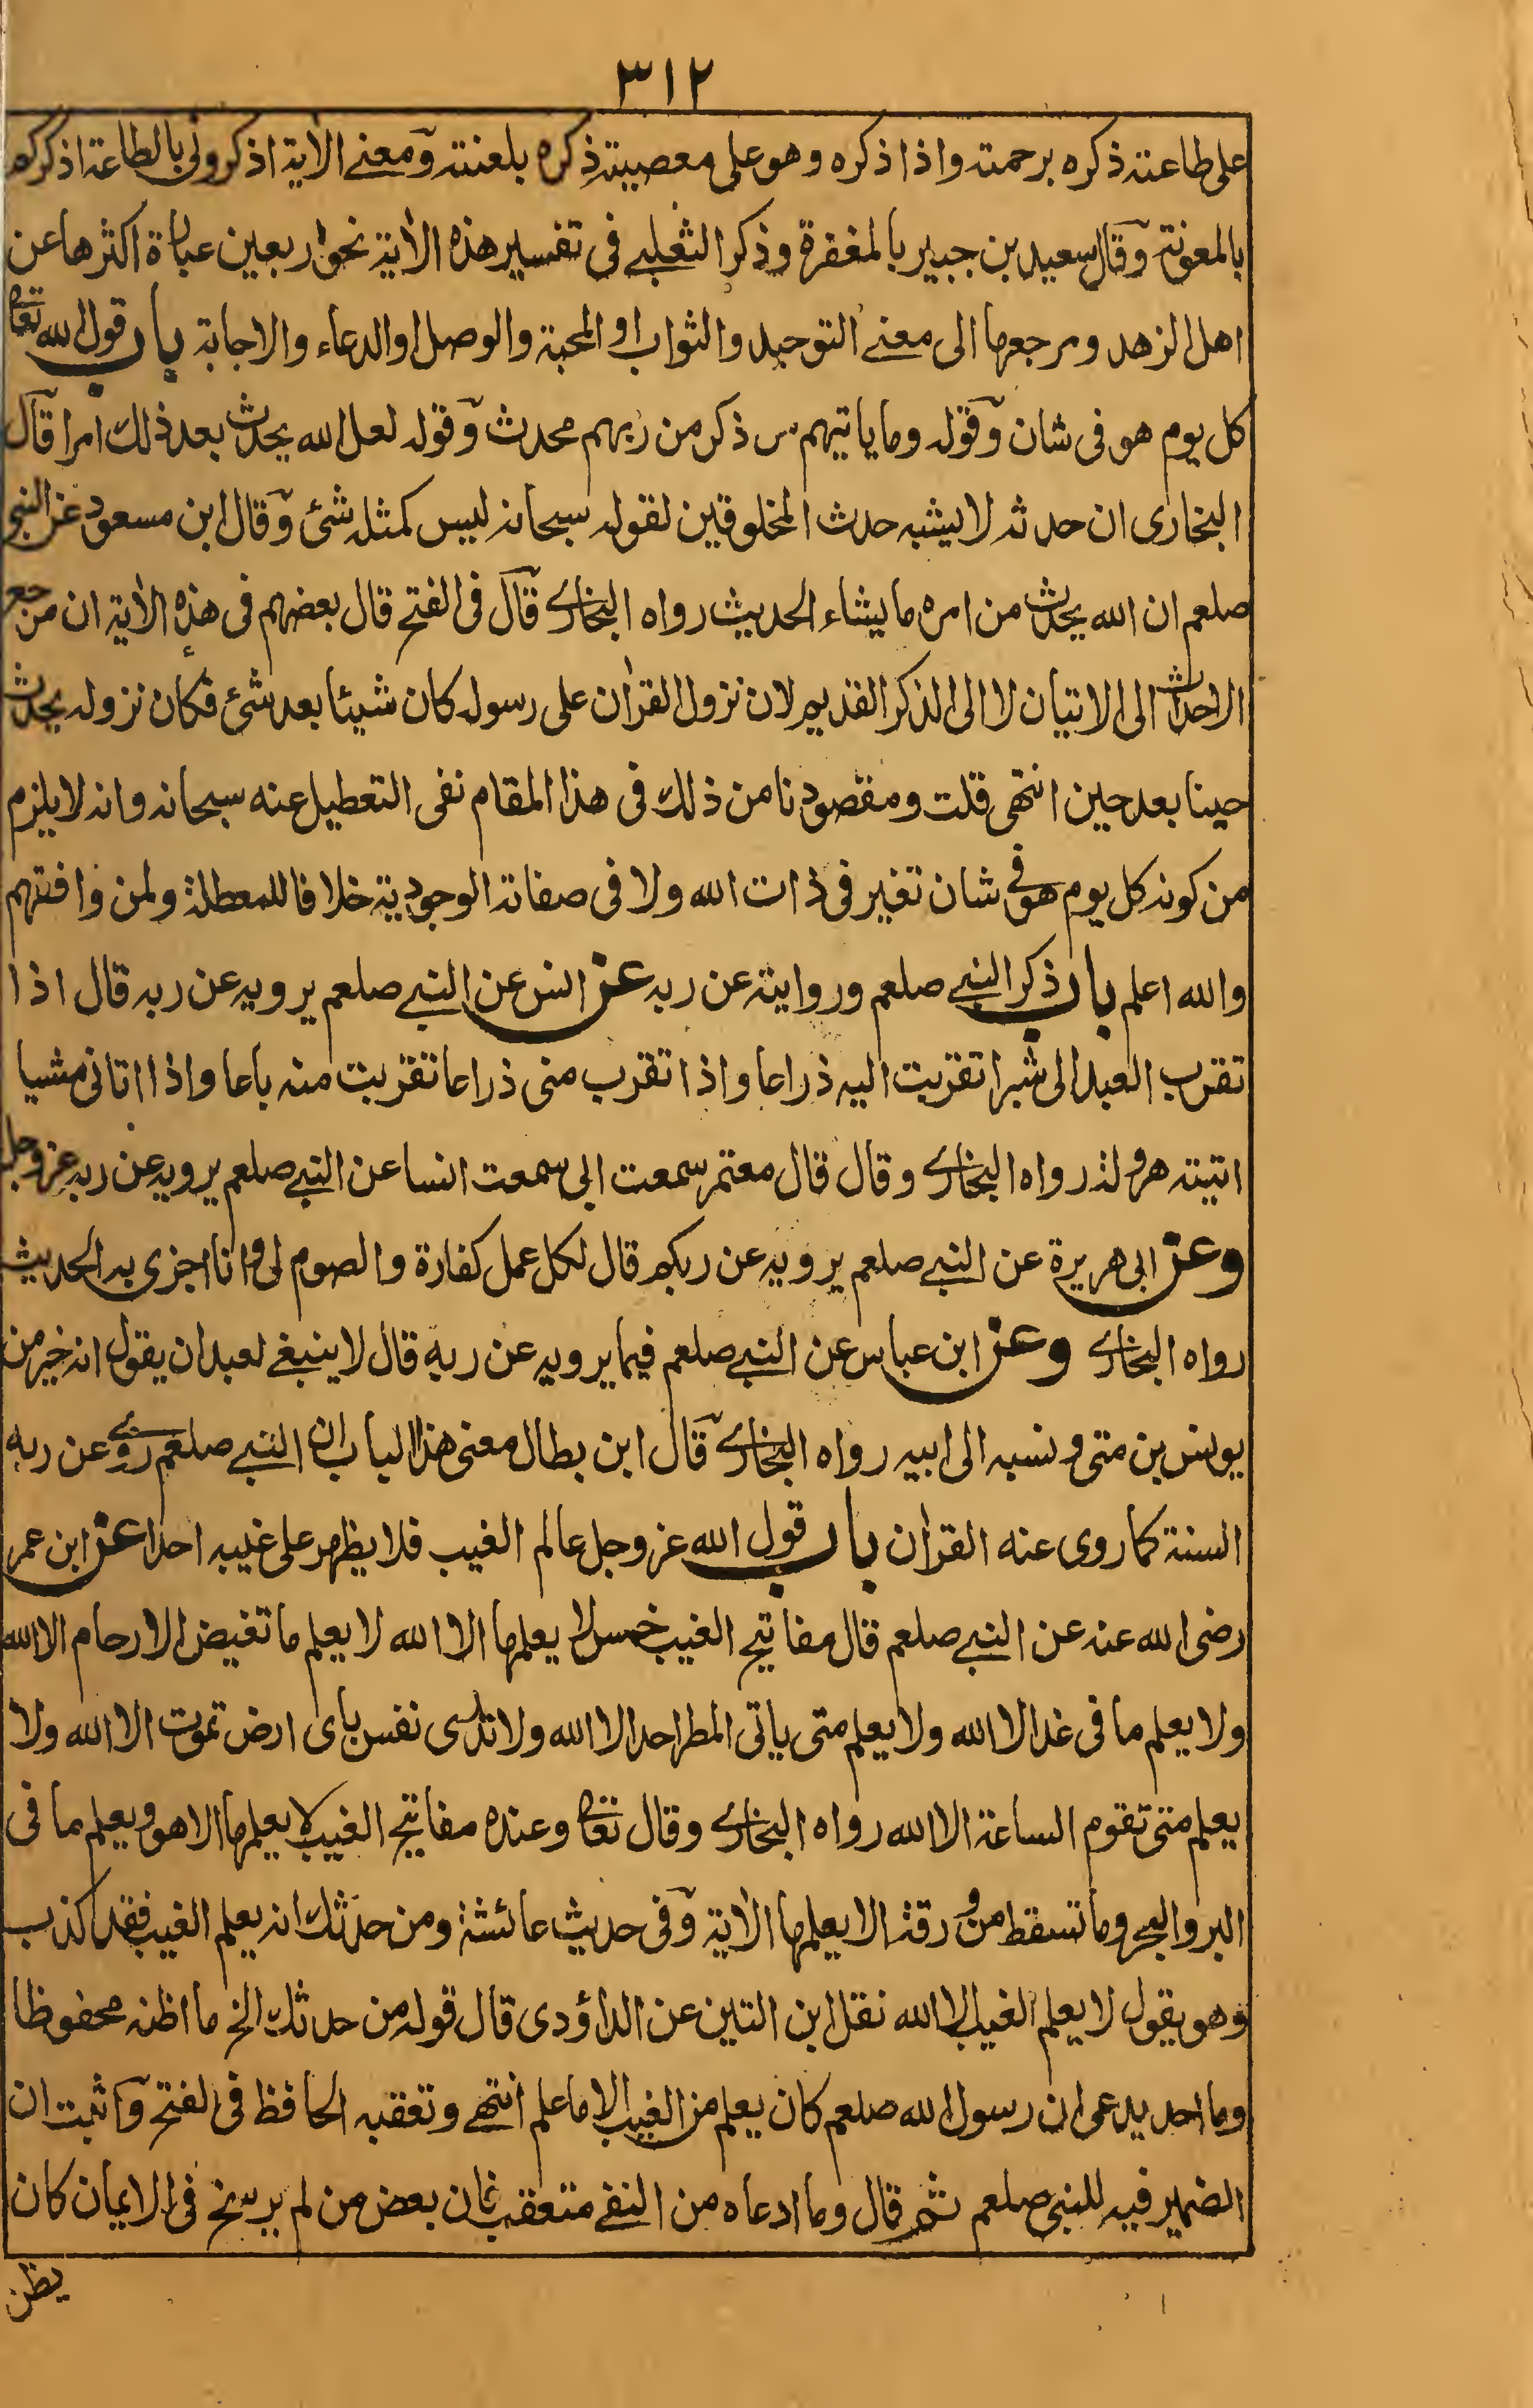 ٣١٢
على طاعته ذكره برحمته واذا ذكره وهو على معصيته ذكره بلعنته ومعنے الاٰية اذكرونى بالطاعة اذكركم
بالمعونة وقال سعيد بن جبير بالمغفرة وذكر الثعلبے فى تفسير هذه الاٰية نحو اربعين عبارة اكثرها عن
اهل الزهد ومرجعها الى معنے التوحيد والثواب او المحبة والوصل او الدعاء والاجابة باب قول الله تعالى
كل يوم هو فى شان وقوله وما ياتيهم من ذكر من ربهم محدث وقوله لعل الله يحدث بعد ذلك امرا قال
البخارى ان حدثه لا يشبه حدث المخلوقين لقوله سبحانه ليس كمثله شئ وقال ابن مسعود عن النبى
صلعم ان الله يحدث من امره ما يشاء الحديث رواه البخارے قال فى الفتح قال بعضهم فى هذه الاٰية ان مرجع
الاحداث الى الاتيان لا الى الذكر القديم لان نزول القراٰن على رسوله كان شيئا بعد شئ فكان نزوله يحدث
حينا بعد حين انتهى قلت ومقصودنا من ذلك فى هذا المقام نفى التعطيل عنه سبحانه وانه لا يلزم
من كونه كل يوم هو فى شان تغير فى ذات الله ولا فى صفاته الوجودية خلافا للمعطلة ولمن وافقهم
والله اعلم باب ذكر النبے صلعم وروايته عن ربه عن انس عن النبے صلعم يرويه عن ربه قال اذا
تقرب العبد الى شبرا تقربت اليه ذراعا واذا تقرب منى ذراعا تقربت منه باعا واذا اتانى مشيا
اتيته هرولة رواه البخارے وقال قال معتمر سمعت ابى سمعت انسا عن النبے صلعم يرويه عن ربه عز وجل
وعن ابى هريرة عن النبے صلعم يرويه عن ربكم قال لكل عمل كفارة والصوم لى وانا اجزى به الحديث
رواه البخارے وعن ابن عباس عن النبے صلعم فيما يرويه عن ربه قال لا ينبغے لعبد ان يقول انه خير من
يونس بن متى ونسبه الى ابيه رواه البخارے قال ابن بطال معنى هذا الباب ان النبے صلعم روے عن ربه
السنة كما روى عنه القراٰن باب قول الله عز وجل عالم الغيب فلا يظهر على غيبه احدا عن ابن عمر
رضى الله عنه عن النبے صلعم قال مفاتيح الغيب خمس لا يعلمها الا الله لا يعلم ما تغيض الارحام الا الله
ولا يعلم ما فى غد الا الله ولا يعلم متى ياتى المطر احد الا الله ولا تدرى نفس باى ارض تموت الا الله ولا
يعلم متى تقوم الساعة الا الله رواه البخارے وقال تعالى وعنده مفاتيح الغيب لا يعلمها الا هو ويعلم ما فى
البر والبحر وما تسقط من ورقة الا يعلمها الاٰية وفى حديث عائشة ومن حدثك انه يعلم الغيب فقد كذب
وهو يقول لا يعلم الغيب الا الله نقل ابن التين عن الداؤدى قال قوله من حدثك الخ ما اظنه محفوظا
وما احد يدعى ان رسول الله صلعم كان يعلم من الغيب الا ما علم انتهے وتعقبه الحافظ فى الفتح واثبت ان
الضمير فيه للنبى صلعم ثم قال وما ادعاه من النفے متعقب فان بعض من لم يرسخ فى الايمان كان
يظن